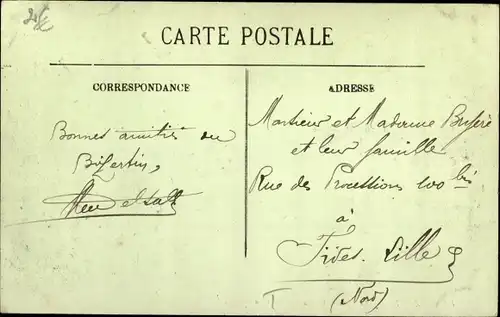 CARTE POSTALE
CORRESPONDANCE
Bonnes amitiés du
Bizertin,
ADRESSE
Monsieur et Madame
et leur famille
Rue des Processions 100 bis
à
Fives. Lille
(Nord)